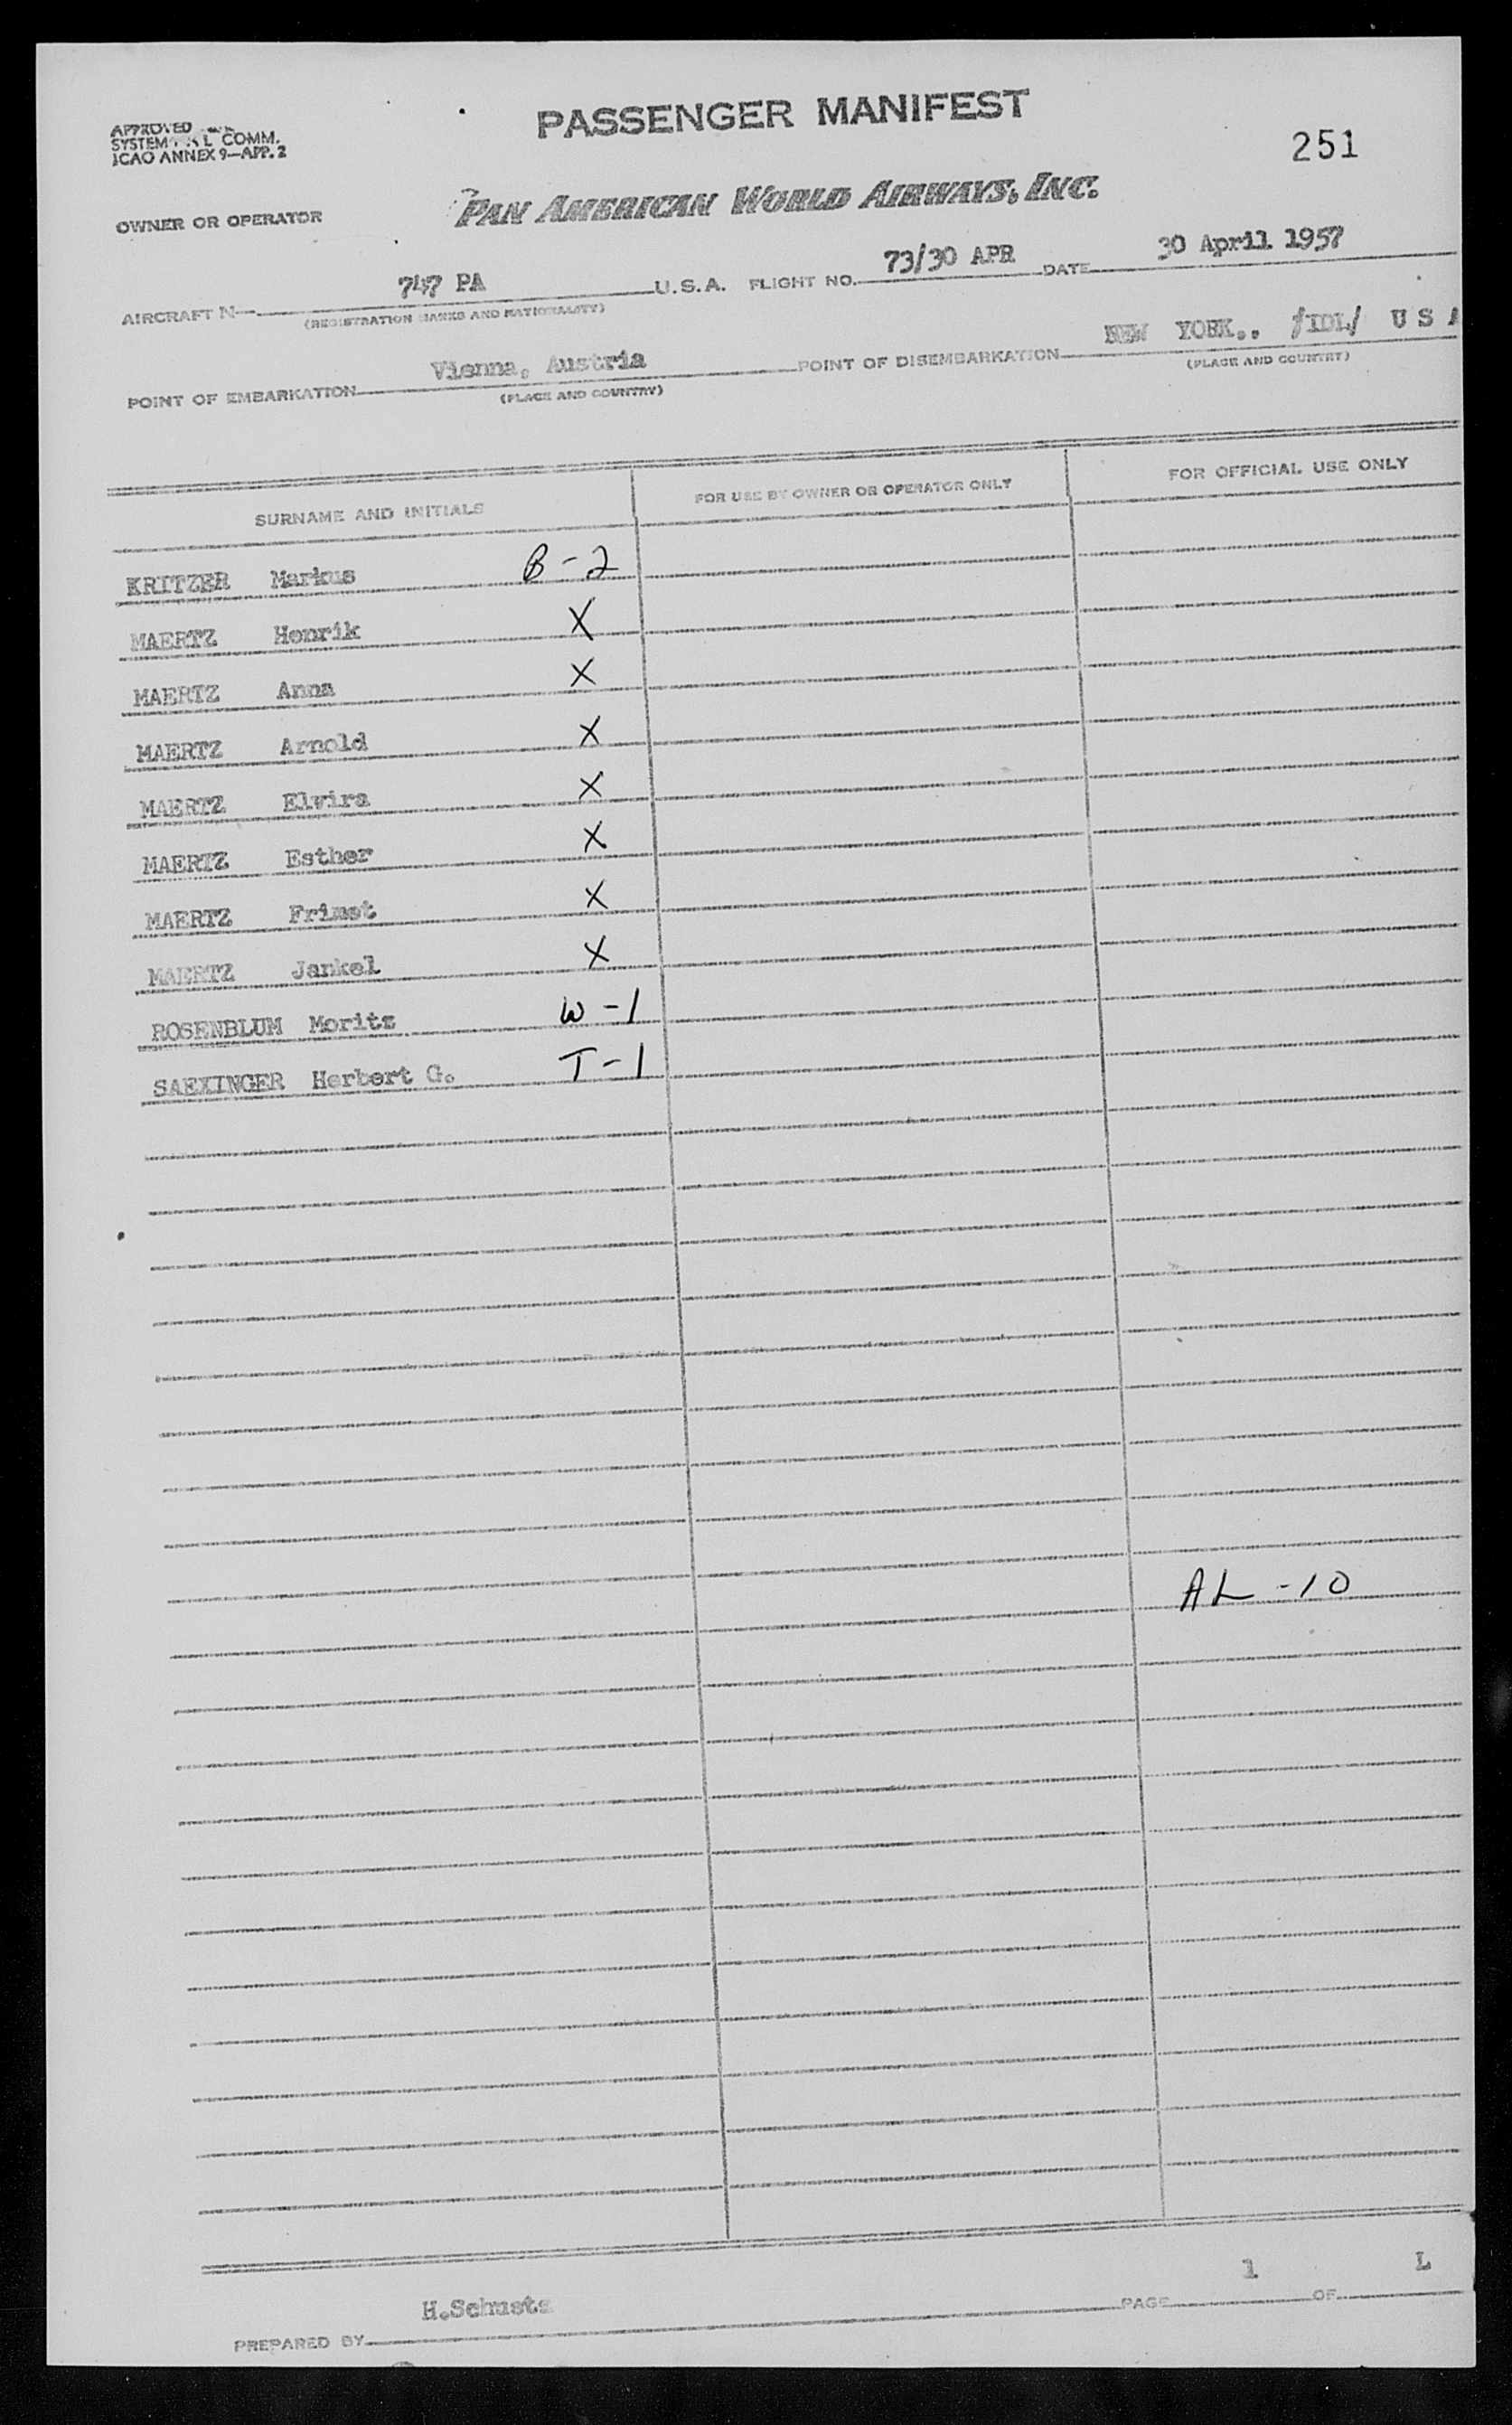 PASSENGER MANIFEST
APPROVED
SYSTEM COMM.
ICAO ANNEX 9—APP. 2
251
OWNER OR OPERATOR PAN AMERICAN WORLD AIRWAYS, INC.
AIRCRAFT N— 747 PA U.S.A. FLIGHT NO. 73/30 APR DATE 30 April 1957
(REGISTRATION MARKS AND NATIONALITY)
POINT OF EMBARKATION Vienna, Austria POINT OF DISEMBARKATION NEW YORK., /IDL/ U S A
(PLACE AND COUNTRY) (PLACE AND COUNTRY)
SURNAME AND INITIALS FOR USE BY OWNER OR OPERATOR ONLY FOR OFFICIAL USE ONLY
KRITZER Markus B-2
MAERTZ Henrik X
MAERTZ Anna X
MAERTZ Arnold X
MAERTZ Elvira X
MAERTZ Esther X
MAERTZ Frimet X
MAERTZ Jankel X
ROSENBLUM Moritz W-1
SAEXINGER Herbert G. T-1
AL-10
PREPARED BY H.Schuste PAGE 1 OF L